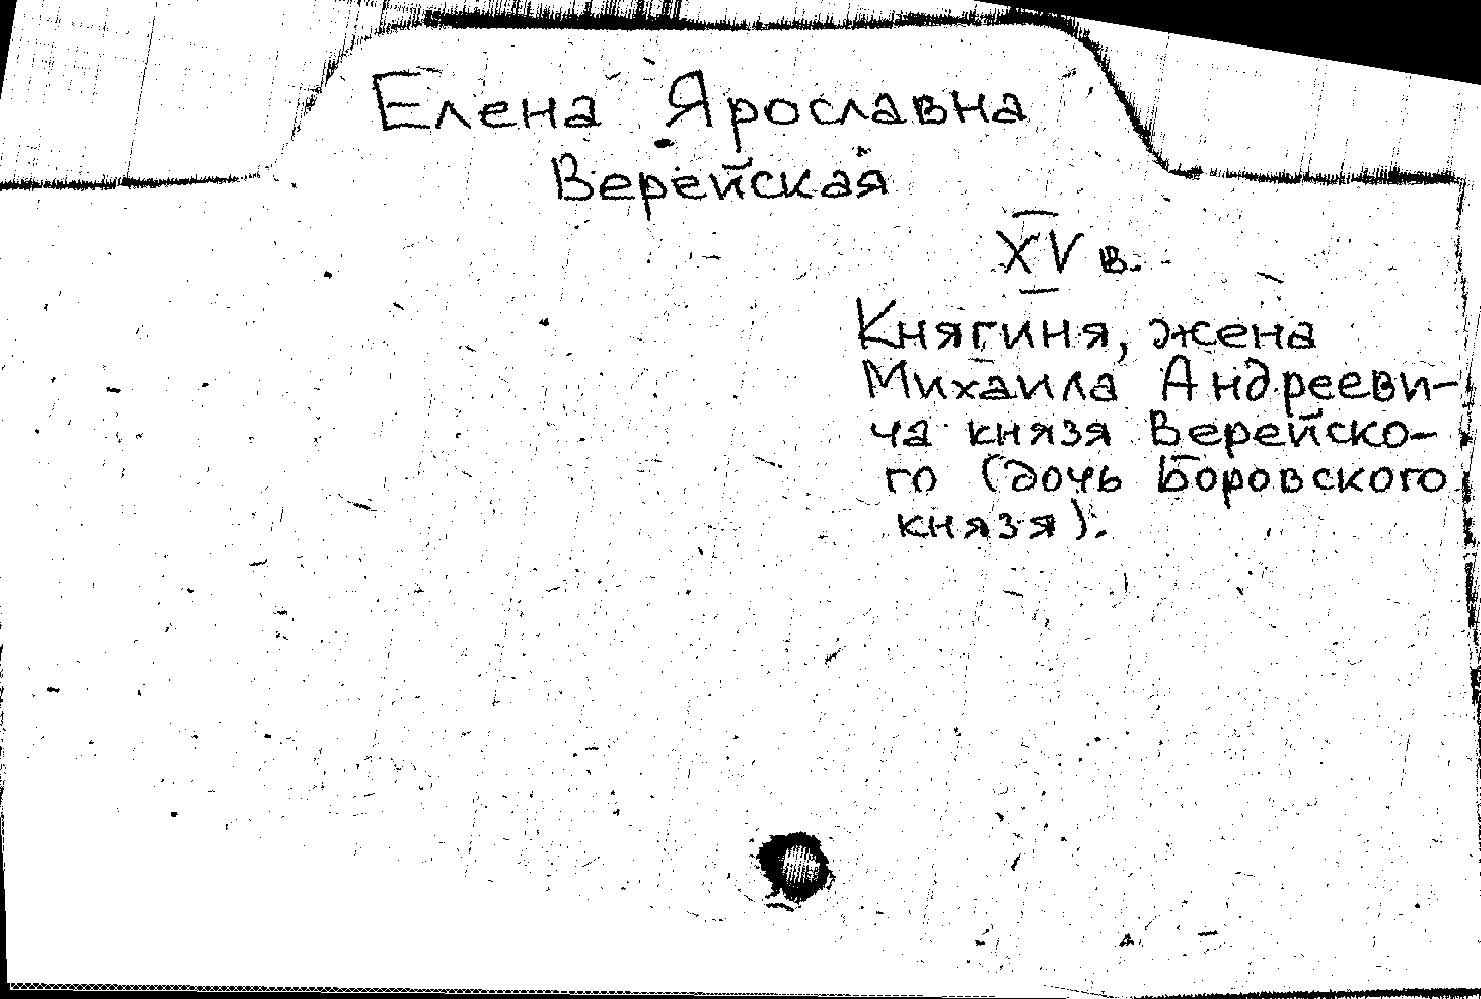 Елена Ярославна
Верейская
XV в.
Княгиня, жена
Михаила Андрееви-
ча князя Верейско-
го (дочь Боровского
князя).